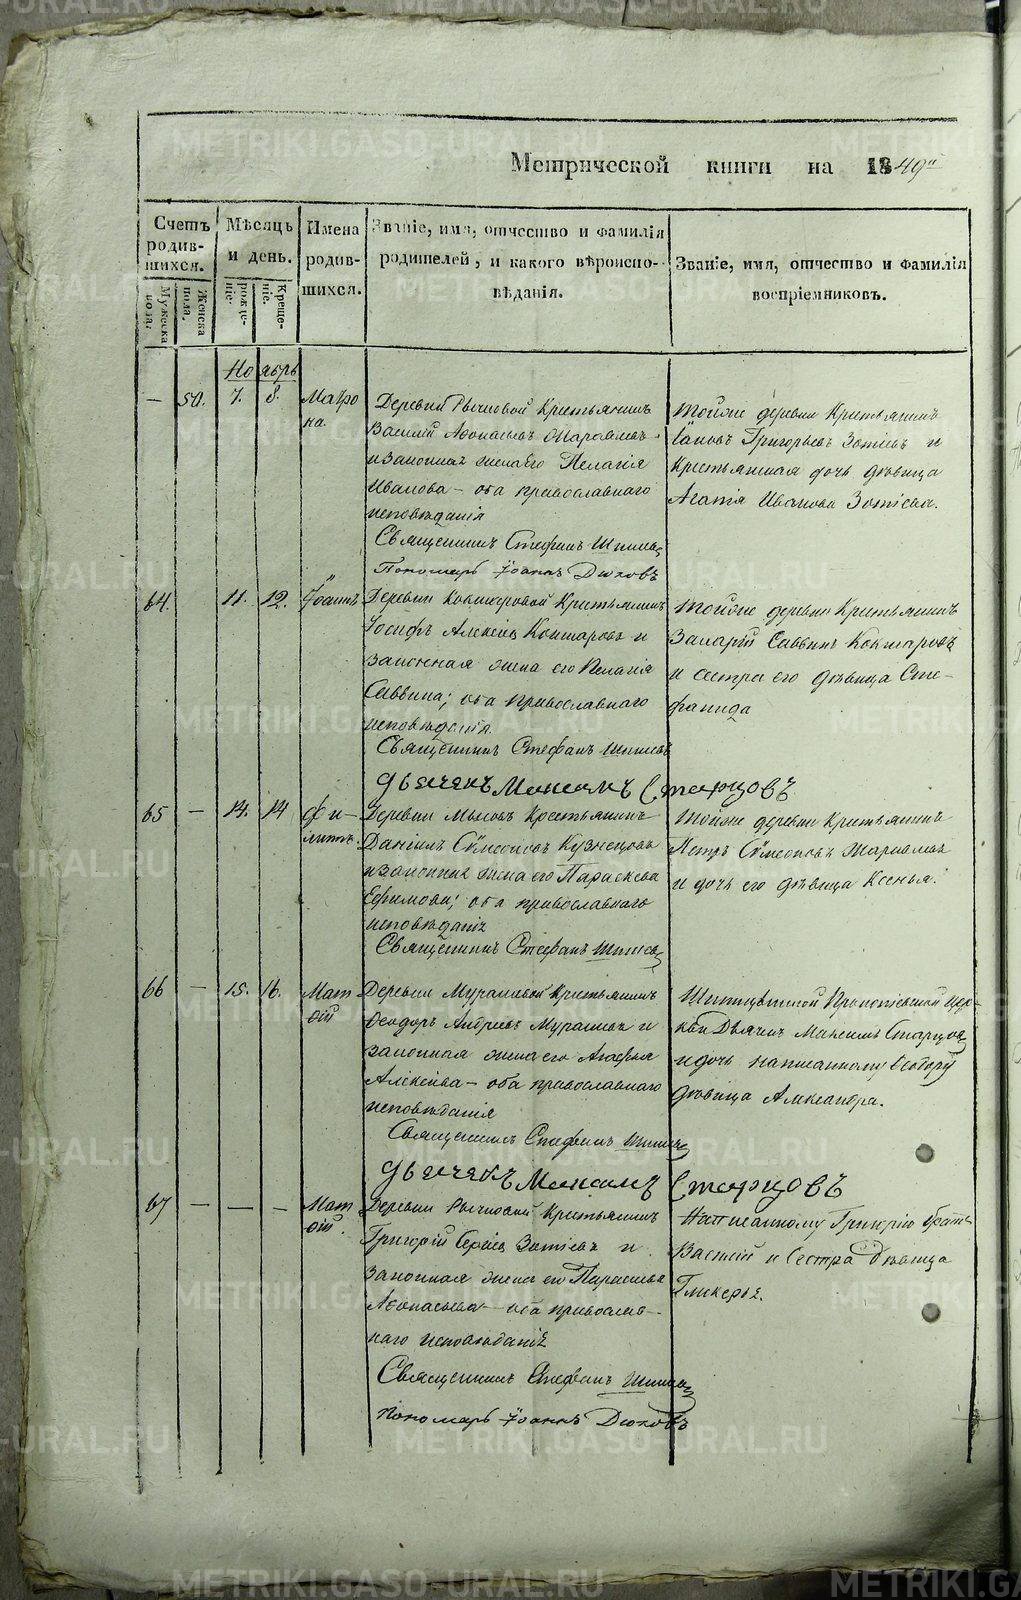 METRIKI.GASO-URAL.RU
Метрической книги на 1849й
Счетъ родив-шихся.
Мужеска пола.
Женска пола.
Мѣсяцъ и день.
рожде-ніе.
Креще-ніе.
Имена родив-шихся.
Званіе, имя, отчество и фамилія
родителей, и какого вѣроиспо-
вѣданія.
Званіе, имя, отчество и фамилія
воспріемниковъ.
Ноябрь
— 50. 7. 8. Матро
на.
Деревни Рычковой Крестьянинъ
Василій Аѳонасьевъ
и законная жена его Пелагія
Иванова — оба православнаго
исповѣданія
Священникъ Стефанъ
Пономарь Іоаннъ Дюковъ
Тойже деревни Крестьянинъ
Григорьевъ Зотіевъ и
Крестьянская дочь дѣвица
Агатія Иванова Зотіева.
64. 11. 12. Іоаннъ
Деревни Кокшаровой Крестьянинъ
Іосифъ Алексѣевъ Кокшаровъ и
законная жена его Пелагія
Саввина; оба православнаго
исповѣданія.
Священникъ Стефанъ
дьячекъ Максимъ Старцовъ
Тойже деревни Крестьянинъ
Саввинъ Кокшаровъ
и сестра его дѣвица Сте-
фанида
65 — 14. 14 Фи-
липъ.
Деревни Крестьянинъ
Даніилъ Сѵмеоновъ Кузнецовъ
и законная жена его Параскева
Ефимова; оба православнаго
исповѣданія
Священникъ Стефанъ
Тойже деревни Крестьянинъ
Петръ Сѵмеоновъ
и дочь его дѣвица Ксенья.
66 — 15. 16. Мат
ѳій
Деревни Крестьянинъ
Ѳеодоръ Андреевъ и
законная жена его Агафья
Алексѣева — оба православнаго
исповѣданія
Священникъ Стефанъ
дьячекъ Максимъ Старцовъ
Прокопіевской цер-
кви Дьячекъ Максимъ Старцовъ
и дочь написанному Ѳеодору
дѣвица Александра.
67 — — — Мат
ѳій.
Деревни Рычковой Крестьянинъ
Григорій Сергѣевъ Зотіевъ и
законная жена его Параскева
Аѳонасьева — оба православ-
наго исповѣданія
Священникъ Стефанъ
Пономарь Іоаннъ Дюковъ
Написанному Григорію братъ
Василій и Сестра дѣвица
Гликерья.